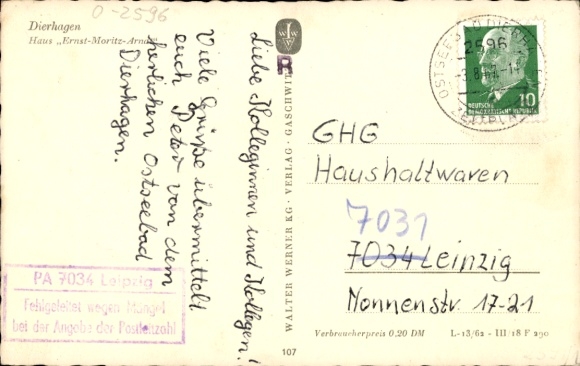 0-2596
Dierhagen
Haus „Ernst-Moritz-Arndt"
Liebe Kolleginnen und Kollegen!
Viele Grüße übermittelt
euch Peter von dem
herrlichen Ostseebad
Dierhagen.
PA 7034 Leipzig
Fehlgeleitet wegen Mängel
bei der Angabe der Postleitzahl
WALTER WERNER KG · VERLAG · GASCHWITZ
107
OSTSEEBAD
2596
10
DEUTSCHE
DEMOKRATISCHE REPUBLIK
GHG
Haushaltwaren
7031
7034 Leipzig
Nonnenstr. 17-21
Verbraucherpreis 0,20 DM L-13/62 - III/18 F 290